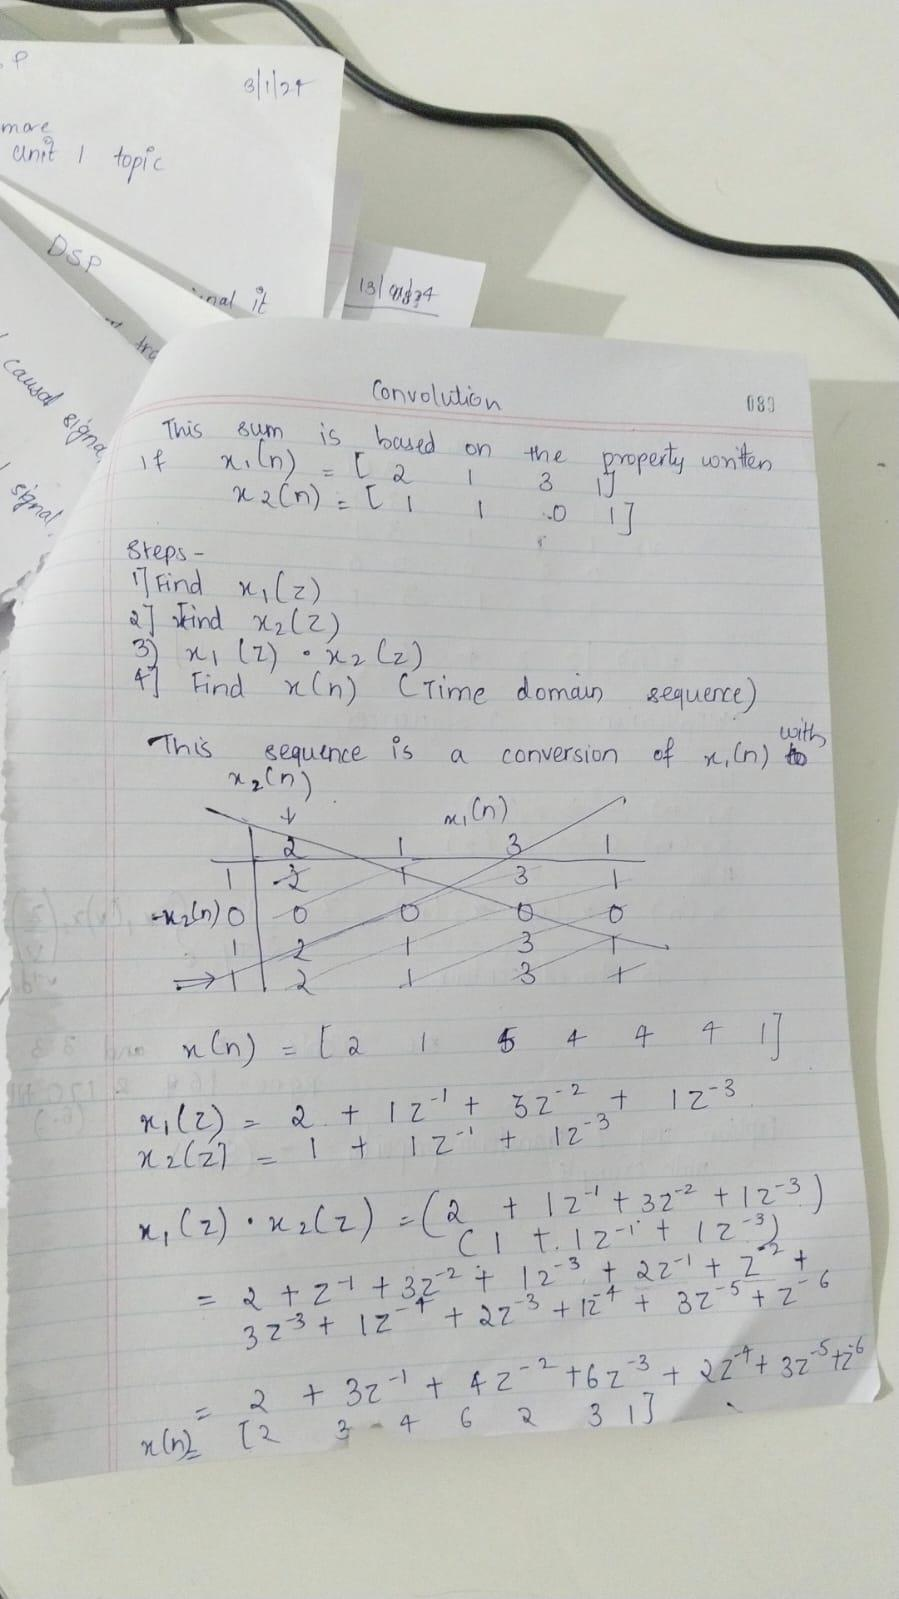 P
3/1/24
more
unit 1 topic
DSP
signal it
causal signal
signal
Convolution
083
This sum is based on the property written
if x1(n) = [ 2 1 3 1]
x2(n) = [ 1 1 0 1]
Steps -
1] Find x1(z)
2] Find x2(z)
3) x1 (z) • x2(z)
4] Find x(n) (Time domain sequence)
This sequence is a conversion of x1(n) with
x2(n)
x1(n)
2 1 3 1
1 2 1 3 1
x2(n) 0 0 0 0 0
1 2 1 3 1
⇒ 1 2 1 3 1
x(n) = [ 2 1 5 4 4 4 1]
x1(z) = 2 + 1z⁻¹ + 3z⁻² + 1z⁻³
x2(z] = 1 + 1z⁻¹ + 1z⁻³
x1(z) • x2(z) = (2 + 1z⁻¹ + 3z⁻² + 1z⁻³)
(1 + 1z⁻¹ + 1z⁻³)
= 2 + z⁻¹ + 3z⁻² + 1z⁻³ + 2z⁻¹ + z⁻² +
3z⁻³ + 1z⁻⁴ + 2z⁻³ + 1z⁻⁴ + 3z⁻⁵ + z⁻⁶
= 2 + 3z⁻¹ + 4z⁻² + 6z⁻³ + 2z⁻⁴ + 3z⁻⁵ + z⁻⁶
x(n) = [2 3 4 6 2 3 1]